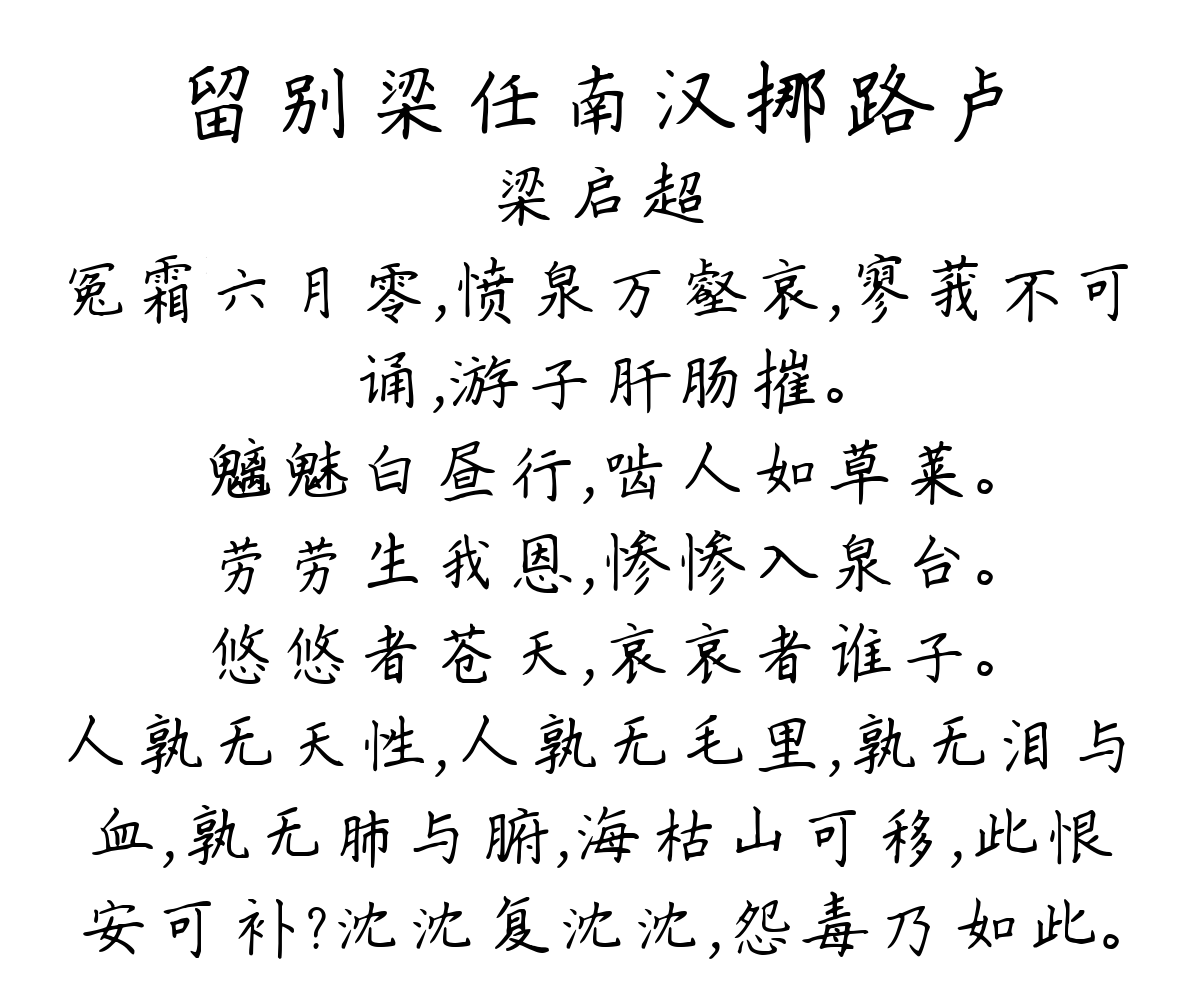 留别梁任南汉挪路卢
梁启超
冤霜六月零,愤泉万壑哀,寥莪不可
诵,游子肝肠摧。
魑魅白昼行,啮人如草莱。
劳劳生我恩,惨惨入泉台。
悠悠者苍天,哀哀者谁子。
人孰无天性,人孰无毛里,孰无泪与
血,孰无肺与腑,海枯山可移,此恨
安可补?沈沈复沈沈,怨毒乃如此。